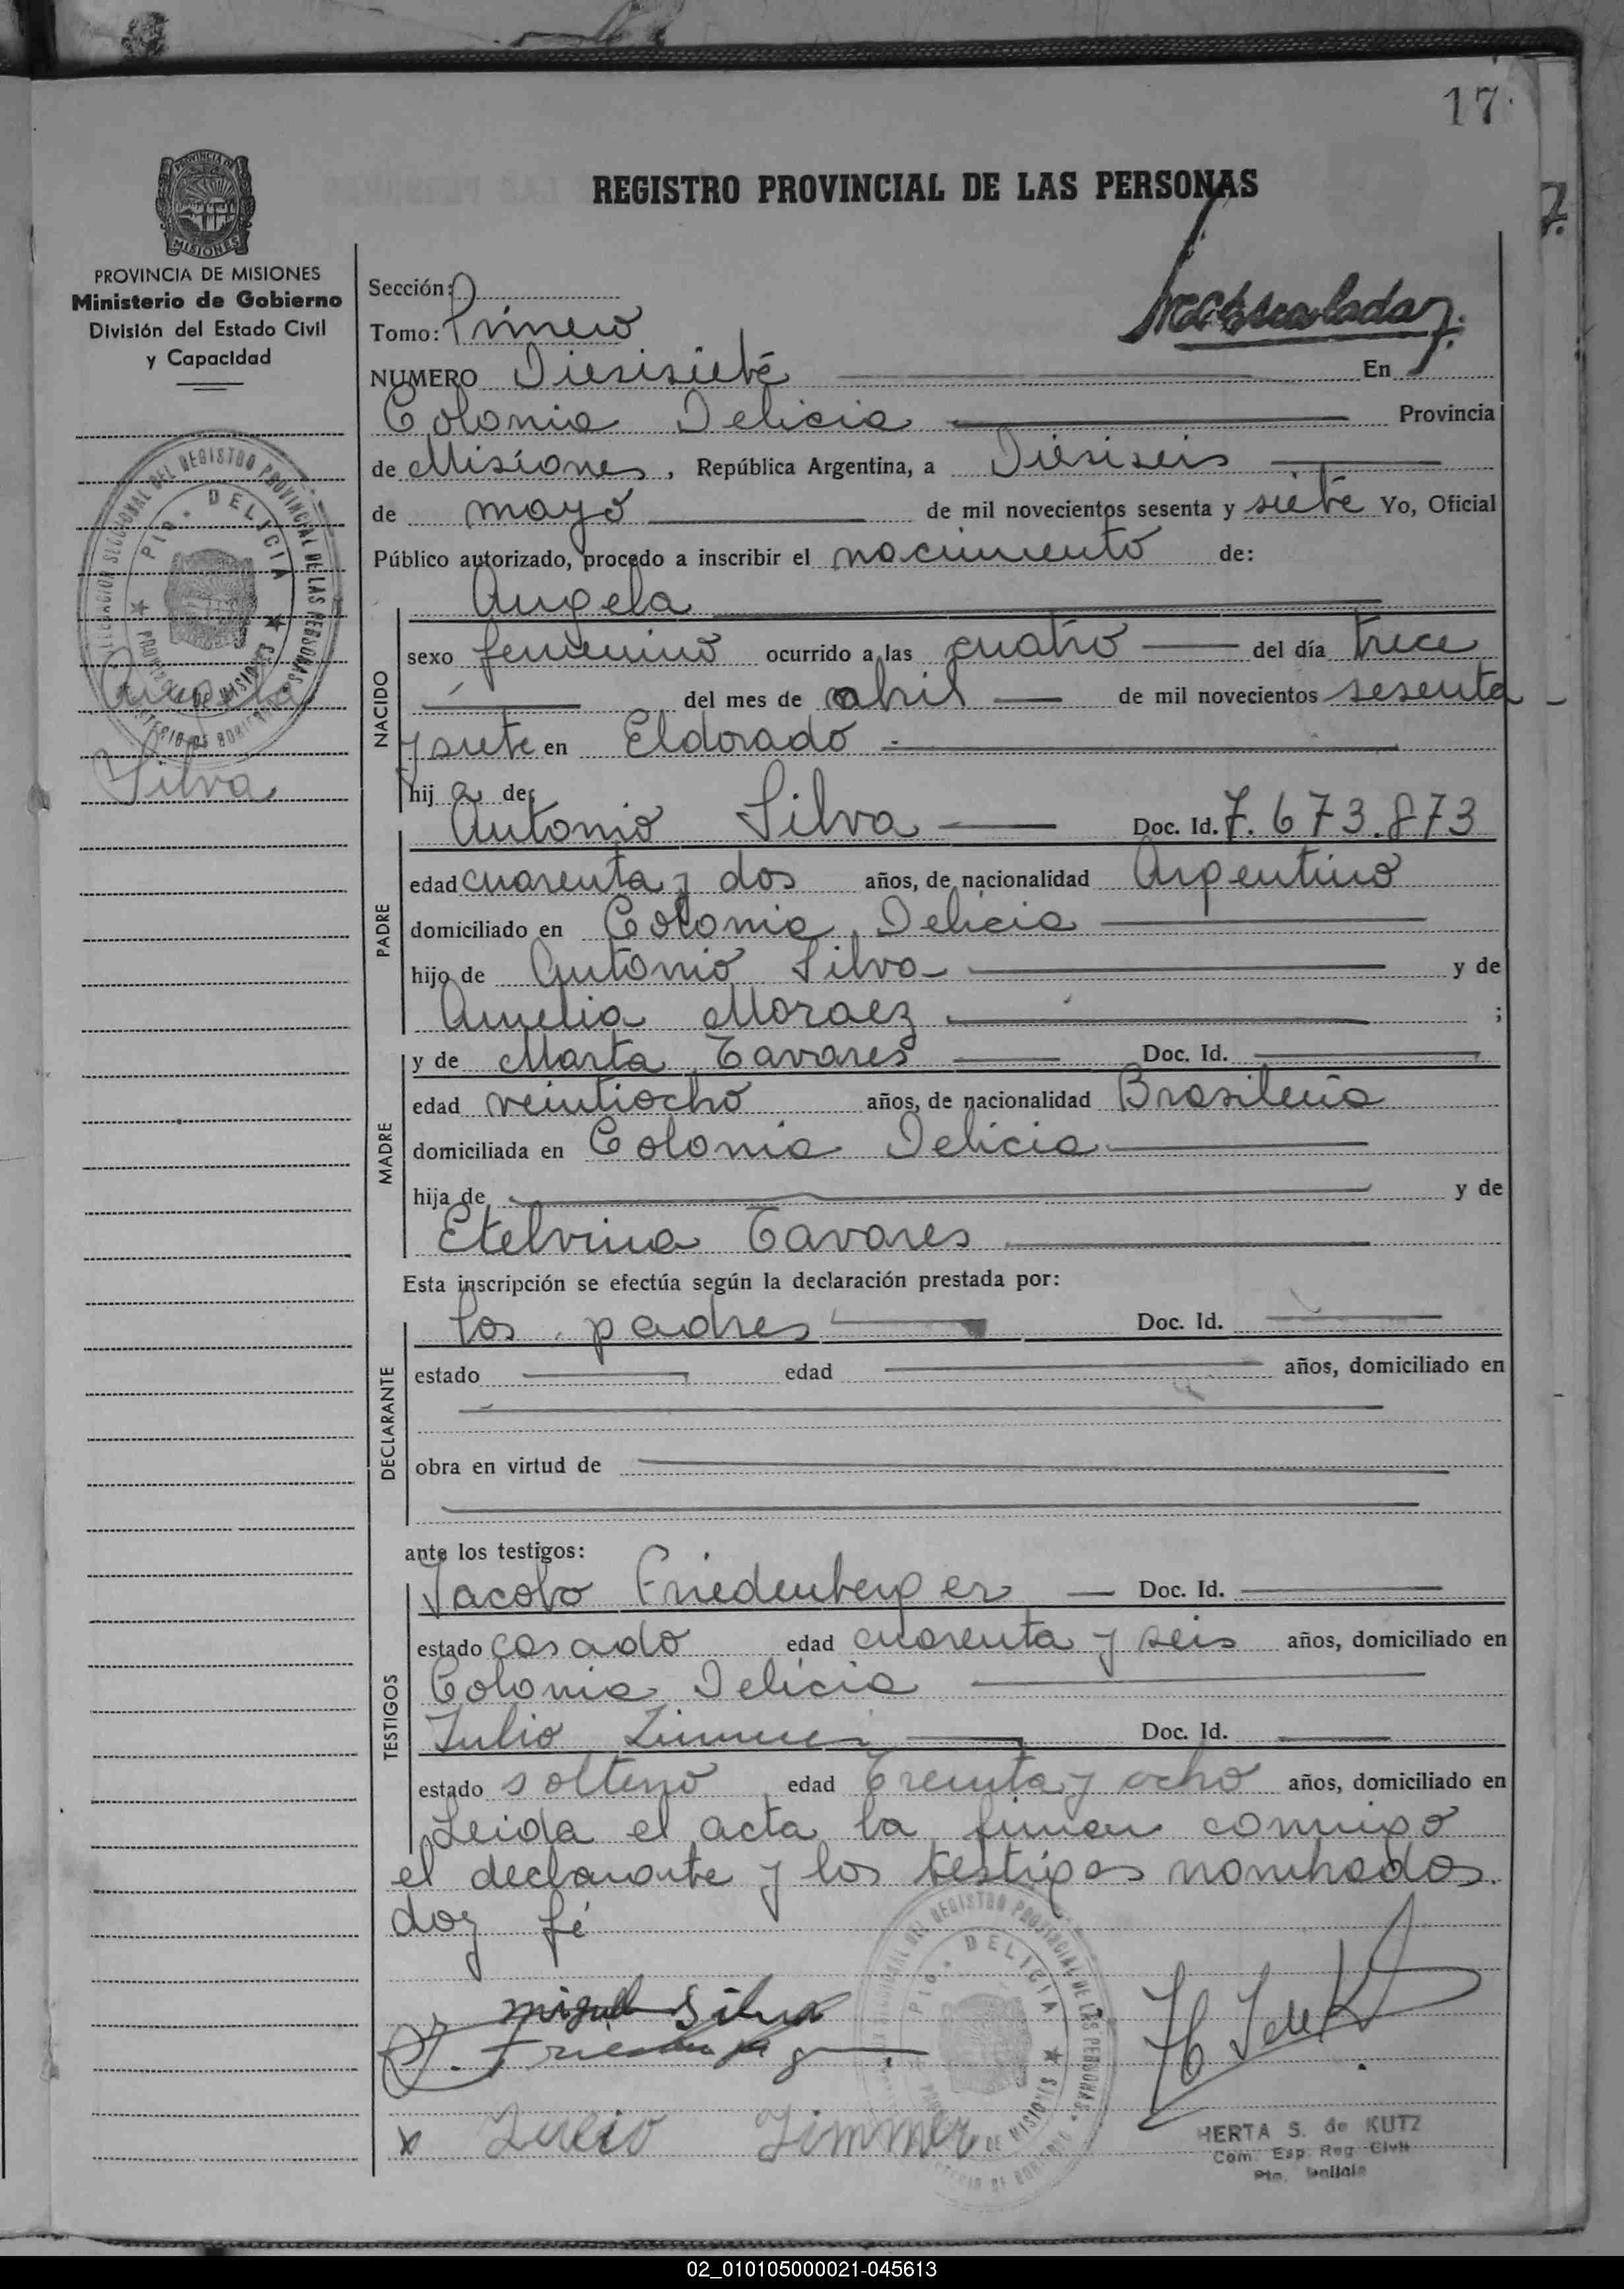 17
REGISTRO PROVINCIAL DE LAS PERSONAS
PROVINCIA DE
MISIONES
PROVINCIA DE MISIONES
Ministerio de Gobierno
División del Estado Civil
y Capacidad
DELEGACION SECCIONAL DEL REGISTRO PROVINCIAL DE LAS PERSONAS
Pto. DELICIA
Angela
Silva
Sección:
Tomo: Primero
NUMERO Diesisiete En
Colonia Delicia Provincia
de Misiones, República Argentina, a Diesiseis
de mayo de mil novecientos sesenta y siete Yo, Oficial
Público autorizado, procedo a inscribir el nacimiento de:
Angela
NACIDO
sexo femenino ocurrido a las cuatro del día trece
del mes de abril de mil novecientos sesenta
y siete en Eldorado
hija de
PADRE
Antonio Silva Doc. Id. 7.673.873
edad cuarenta y dos años, de nacionalidad Argentino
domiciliado en Colonia Delicia
hijo de Antonio Silva y de
Amelia Moraez ;
MADRE
y de Marta Tavares Doc. Id.
edad veintiocho años, de nacionalidad Brasileña
domiciliada en Colonia Delicia
hija de y de
Etelvina Tavares
Esta inscripción se efectúa según la declaración prestada por:
DECLARANTE
los padres Doc. Id.
estado edad años, domiciliado en
obra en virtud de
ante los testigos:
TESTIGOS
Jacobo Friedenberger Doc. Id.
estado casado edad cuarenta y seis años, domiciliado en
Colonia Delicia
Julio Zimmer Doc. Id.
estado soltero edad Treinta y ocho años, domiciliado en
Leida el acta la firman conmigo
el declarante y los testigos nombrados
doy fé
miguel Silva
Julio Zimmer
DELEGACION SECCIONAL DEL REGISTRO PROVINCIAL DE LAS PERSONAS
Pto. DELICIA
HERTA S. de KUTZ
Com. Esp. Reg. Civil
Pto. Delicia
02_010105000021-045613